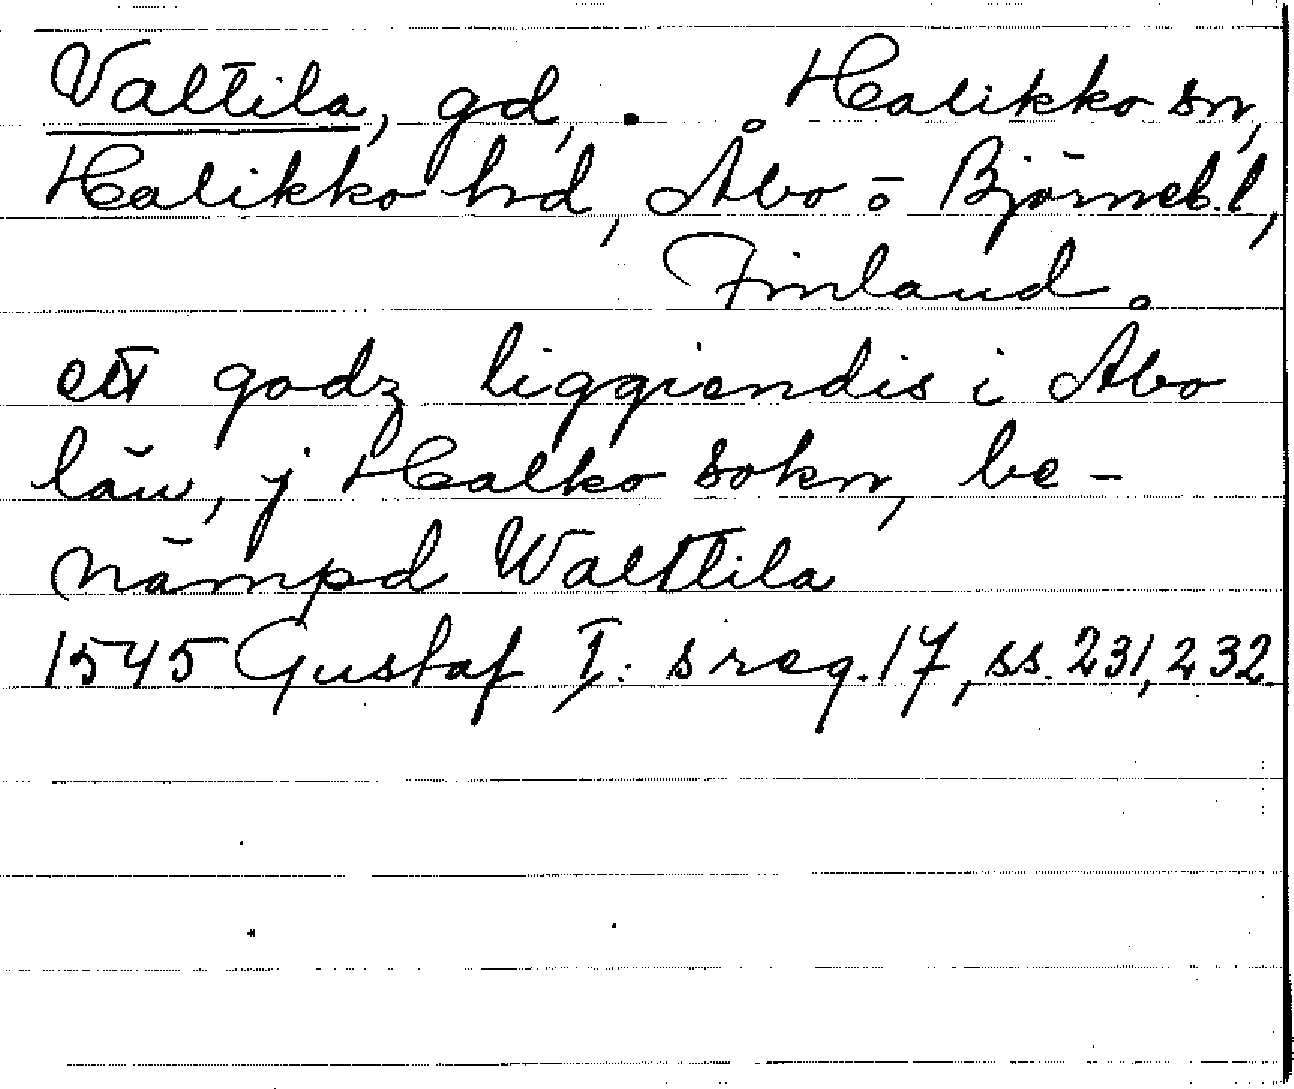 Valtila, gd, . Halikko sn,
Halikko hd, Åbo- o Björneb. l,
Finland.
ett godz liggiendis i Åbo
län, j Halko sokn, be-
nämpd Walttila
1545 Gustaf I:s reg. 17, ss. 231, 232.